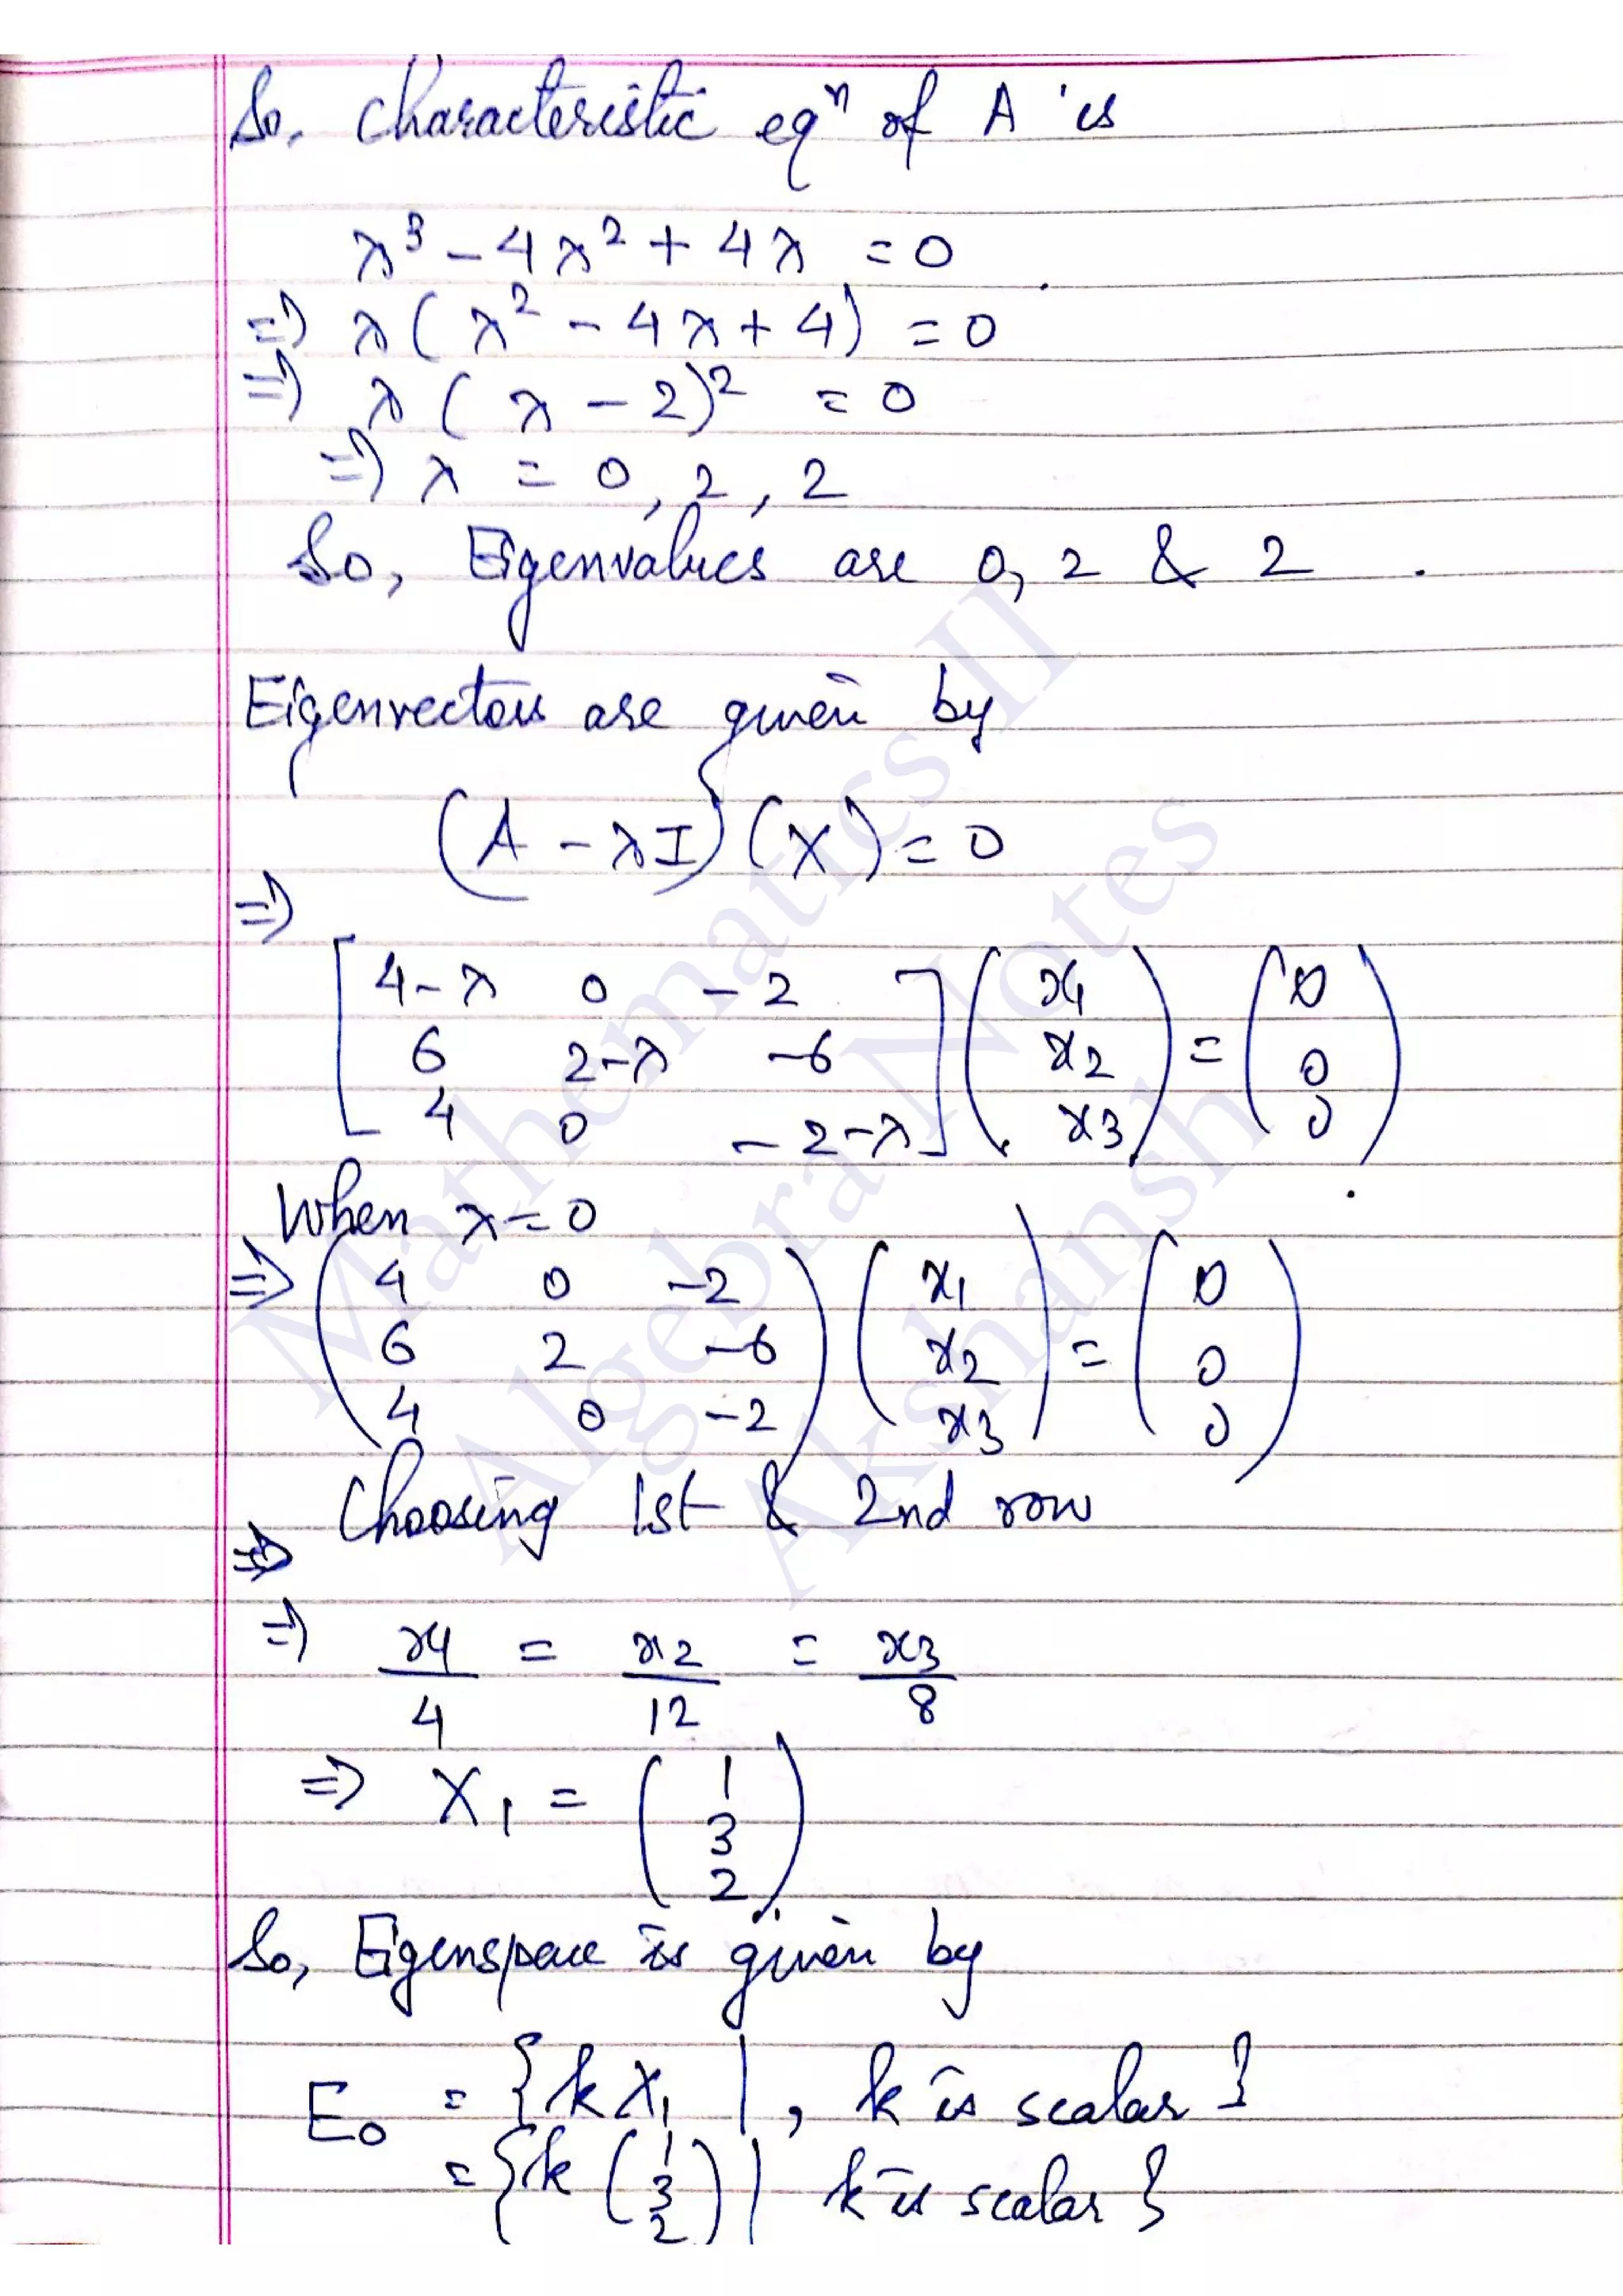 So, characteristic eqⁿ of A is
λ³ - 4λ² + 4λ = 0
⇒ λ(λ² - 4λ + 4) = 0
⇒ λ(λ - 2)² = 0
⇒ λ = 0, 2, 2
So, Eigenvalues are 0, 2 & 2 .
Eigenvectors are given by
(A - λI)(X) = 0
⇒
[ 4-λ 0 -2 ] ( x1 ) = ( 0 )
[ 6 2-λ -6 ] ( x2 ) = ( 0 )
[ 4 0 -2-λ ] ( x3 ) = ( 0 )
When λ = 0
⇒ ( 4 0 -2 ) ( x1 ) = ( 0 )
( 6 2 -6 ) ( x2 ) = ( 0 )
( 4 0 -2 ) ( x3 ) = ( 0 )
Choosing 1st & 2nd row
⇒
⇒ x1/4 = x2/12 = x3/8
⇒ X1 = ( 1
3
2 )
So, Eigenspace is given by
E0 = {kX1 | , k is scalar }
= {k ( 1 3 2 ) | k is scalar }
Mathematics II
Algebra Notes
Akshansh